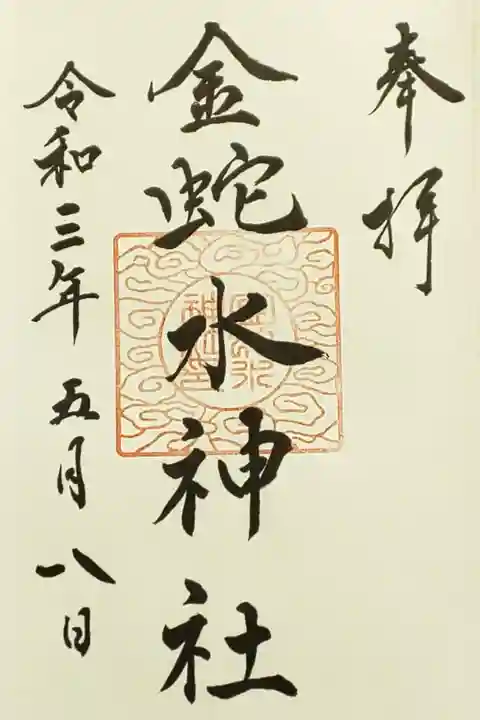 奉拝
金蛇水神社
令和三年五月八日